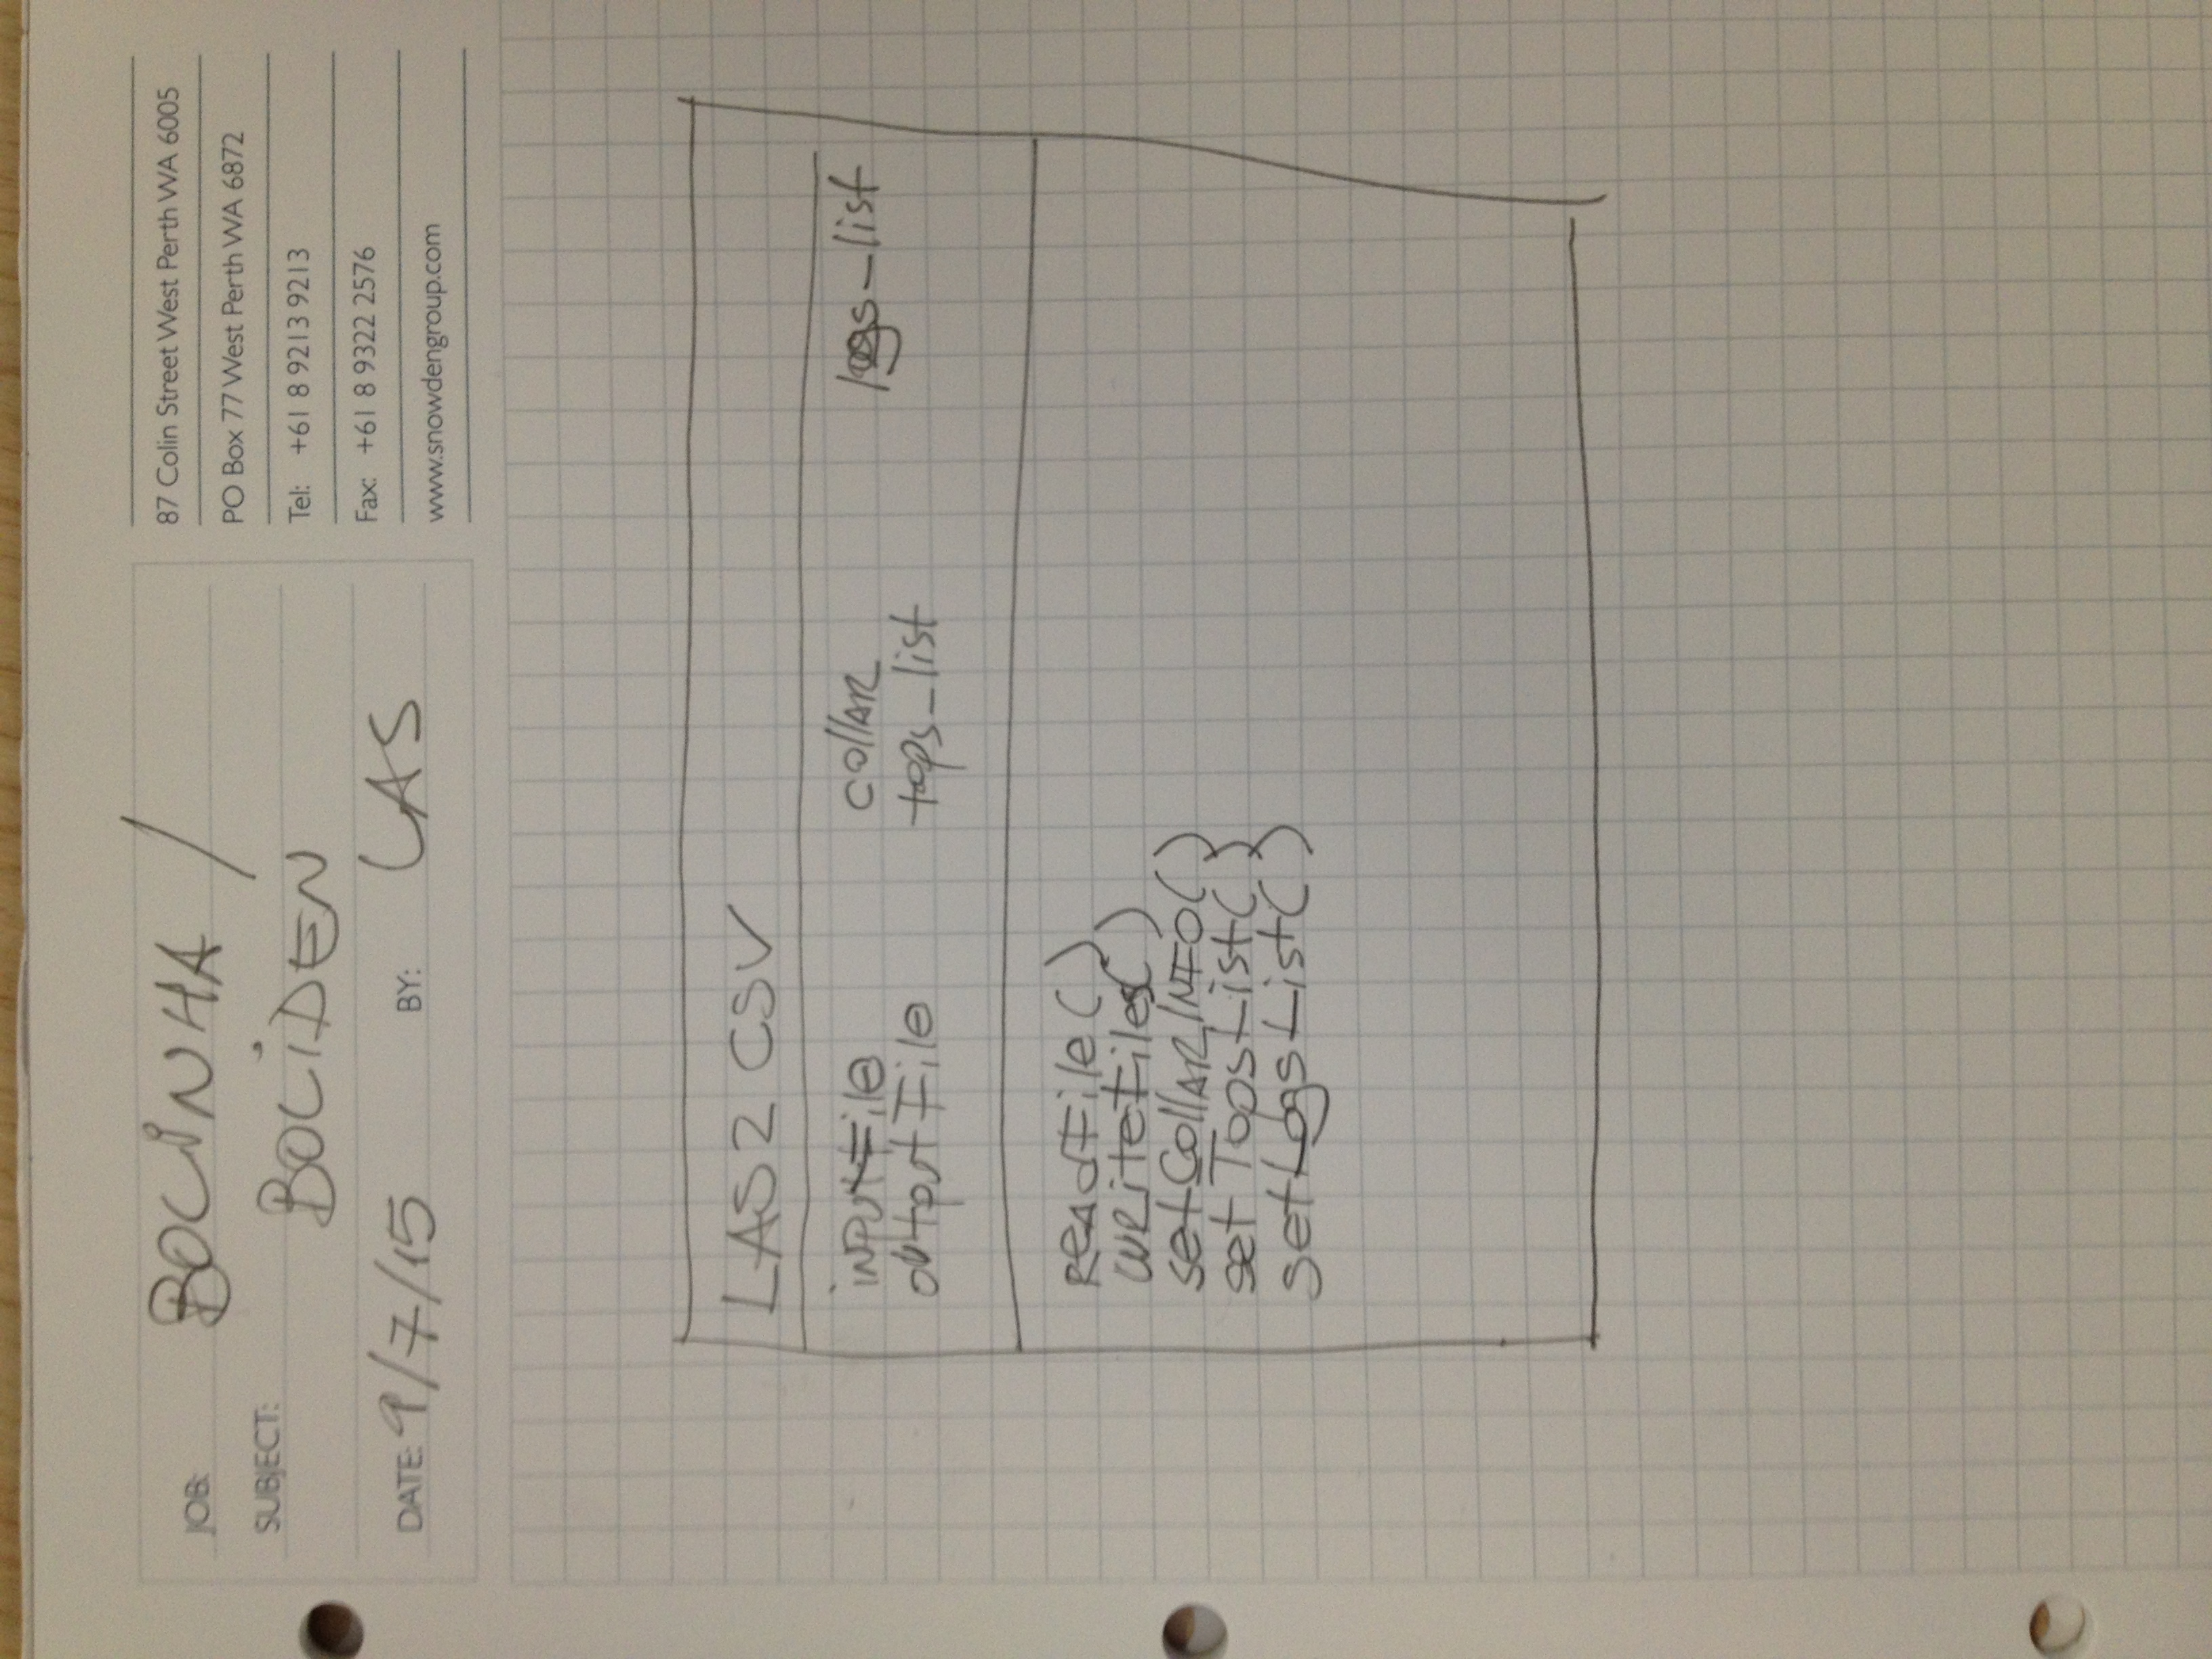 JOB: BOLINHA /
SUBJECT: BOLIDEN
DATE: 9/7/15 BY: LAS
87 Colin Street West Perth WA 6005
PO Box 77 West Perth WA 6872
Tel: +61 8 9213 9213
Fax: +61 8 9322 2576
www.snowdengroup.com
LAS2CSV
inputFile collar logs_list
outputFile tops_list
readFile()
writeFiles()
setCollarInfo()
setTopsList()
setLogsList()